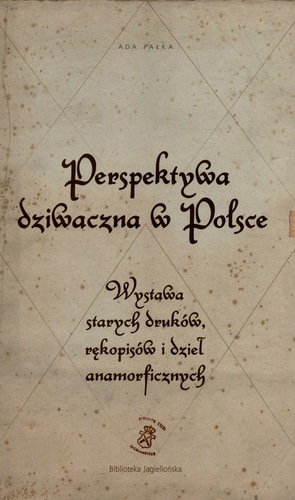 ADA PAŁKA
Perspektywa
dziwaczna w Polsce
Wystawa
starych druków,
rękopisów i dzieł
anamorficznych
Biblioteka Jagiellońska